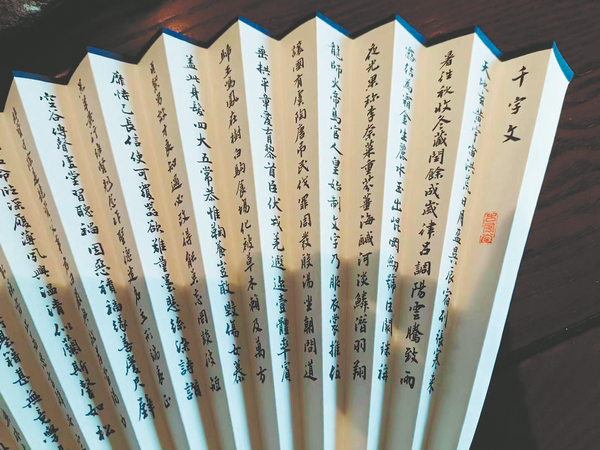 千字文
天地玄黃宇宙洪荒日月盈昃辰宿列張寒來
暑往秋收冬藏閏餘成歲律呂調陽雲騰致雨
露結為霜金生麗水玉出崐岡劍號巨闕珠稱
夜光果珍李柰菜重芥薑海鹹河淡鱗潛羽翔
龍師火帝鳥官人皇始制文字乃服衣裳推位
讓國有虞陶唐弔民伐罪周發殷湯坐朝問道
垂拱平章愛育黎首臣伏戎羌遐邇壹體率賓
歸王鳴鳳在樹白駒食場化被草木賴及萬方
蓋此身髮四大五常恭惟鞠養豈敢毀傷女慕
貞絜男效才良知過必改得能莫忘罔談彼短
靡恃己長信使可覆器欲難量墨悲絲染詩讚
羔羊景行維賢克念作聖德建名立形端表正
空谷傳聲虛堂習聽禍因惡積福緣善慶尺璧
命臨深履薄夙興溫凊似蘭斯馨如松
籍甚無竟學